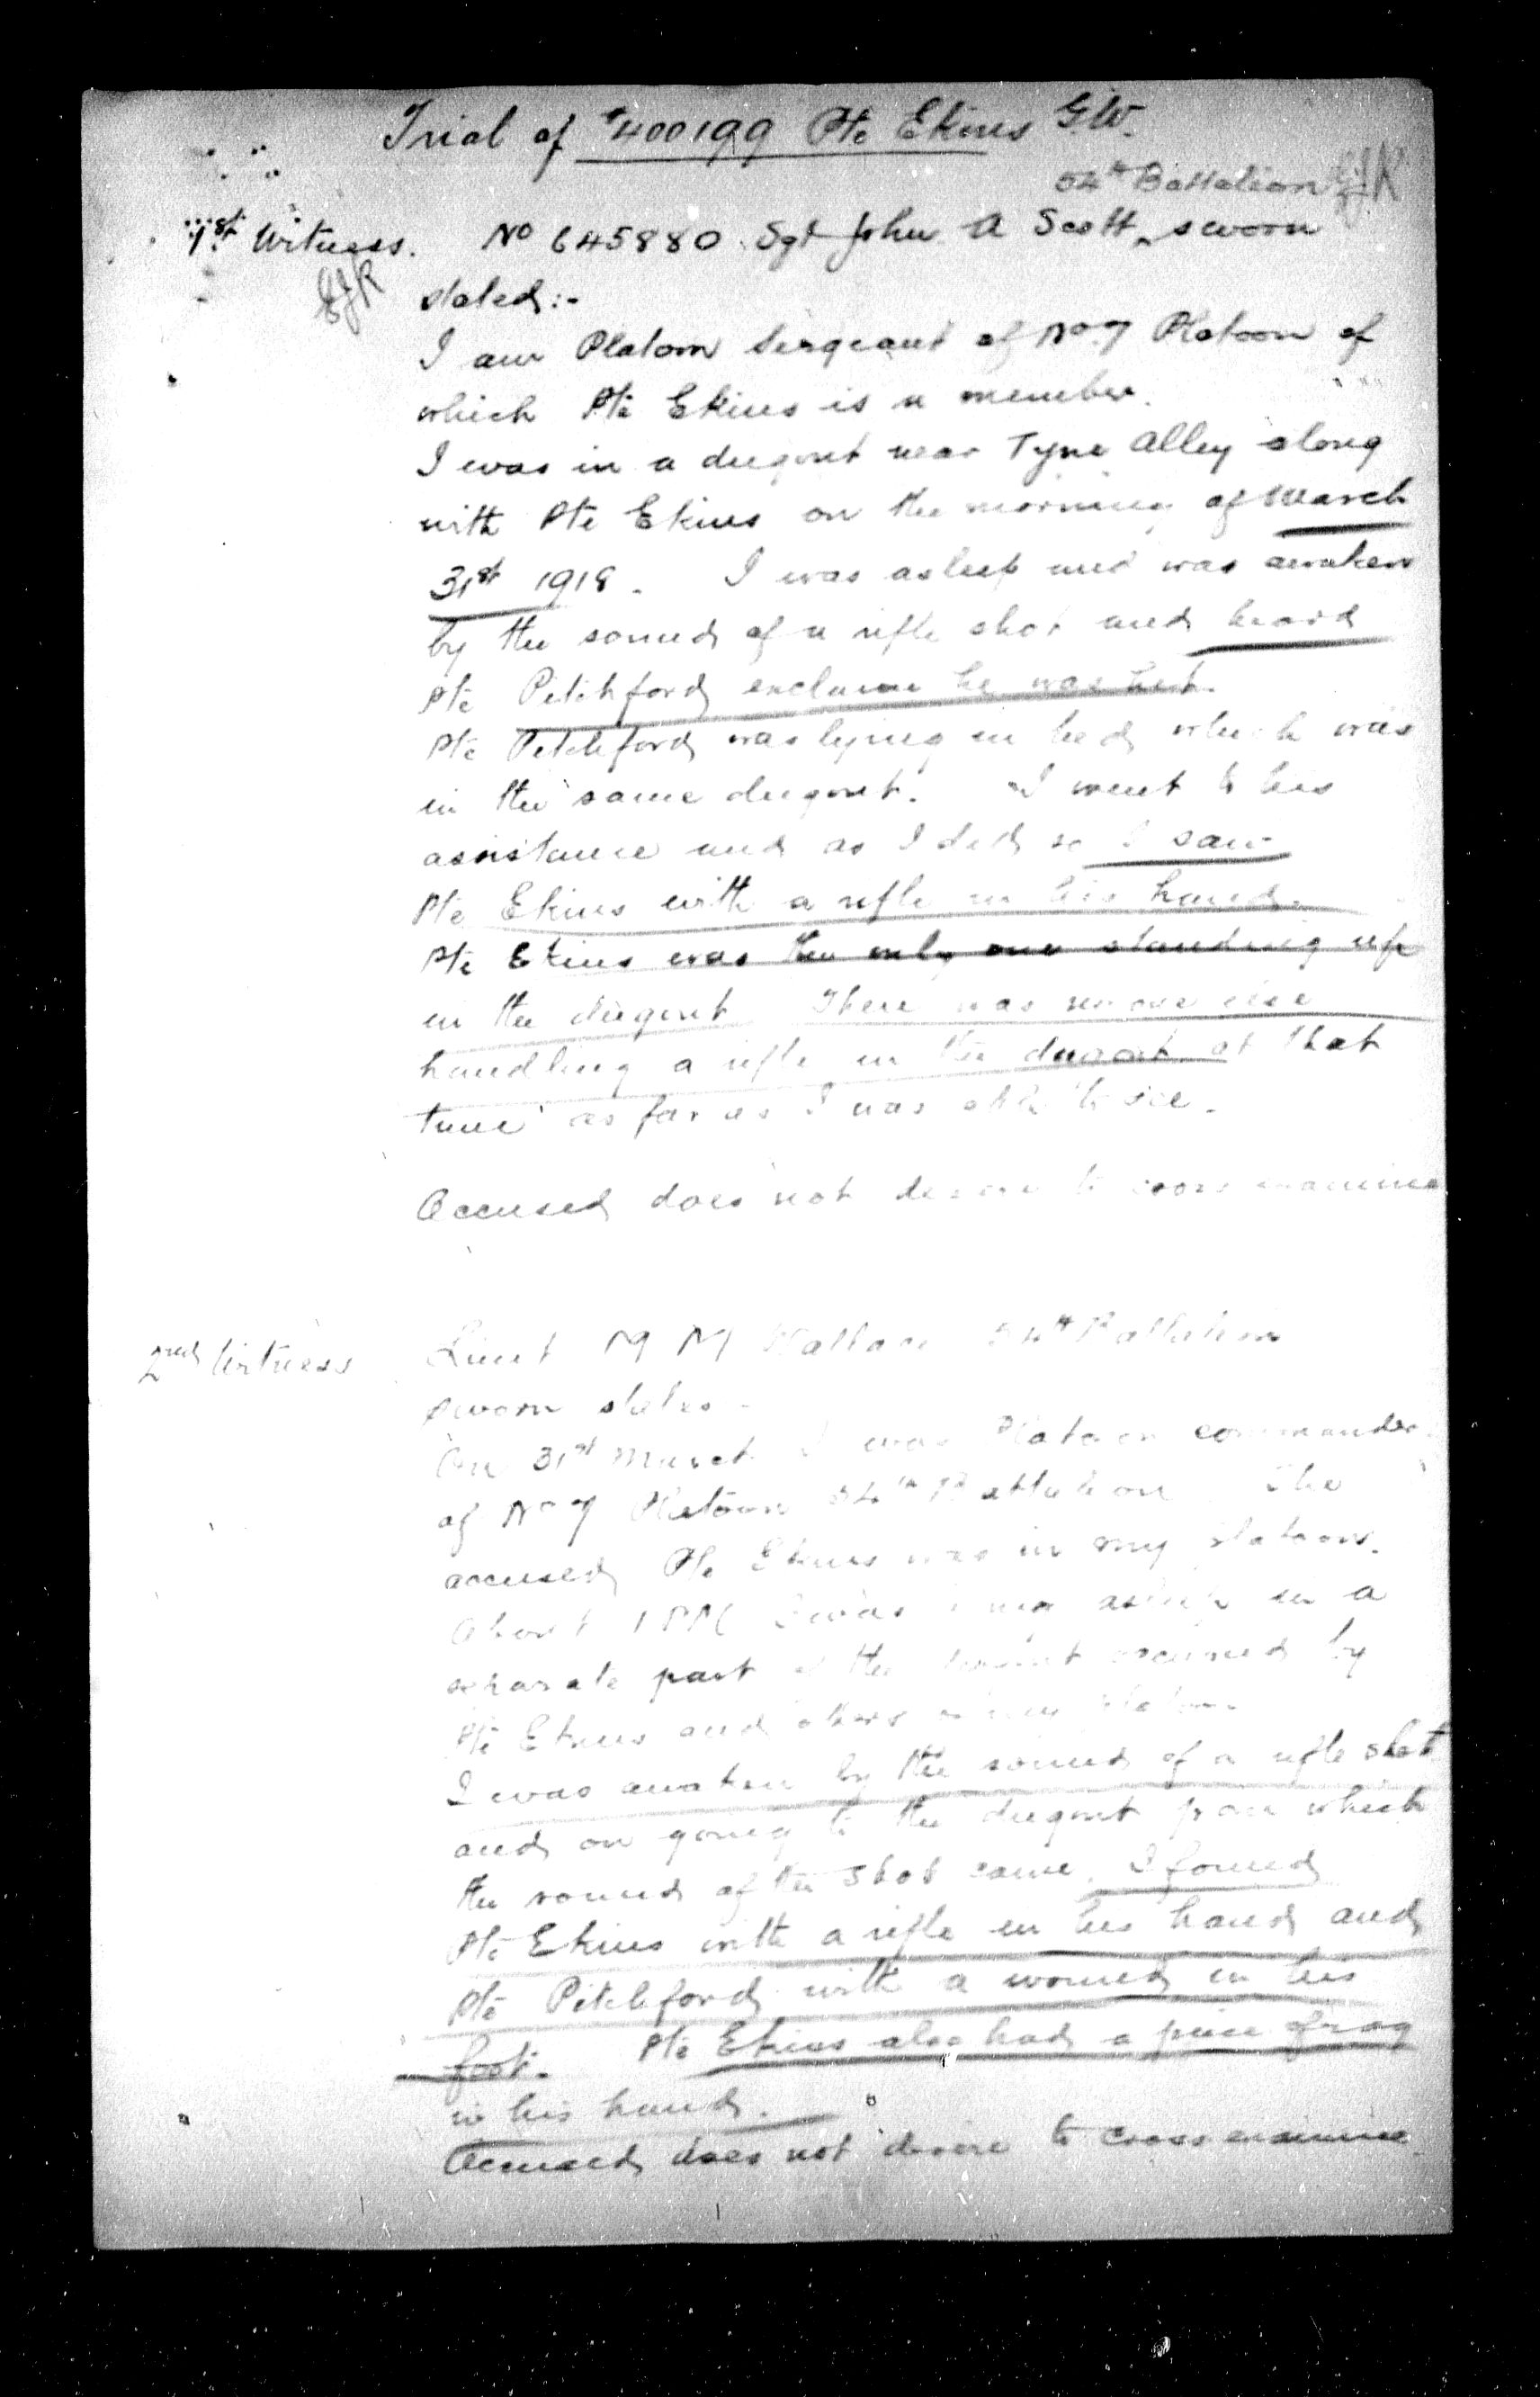 Trial of #400199 Pte Ekins G.W.
54th Battalion EJR
1st Witness. No 645880 Sgt John A Scott, sworn
EJR stated:-
I am Platoon Sergeant of No 7 Platoon of
which Pte Ekins is a member.
I was in a dugout near Tyne Alley along
with Pte Ekins on the morning of March
31st 1918. I was asleep and was awaken
by the sound of a rifle shot and heard
Pte Pitchford exclaim he was hit.
Pte Pitchford was lying in bed which was
in the same dugout. I went to his
assistance and as I did so I saw
Pte Ekins with a rifle in his hand.
Pte Ekins was the only one standing up
in the dugout There was no one else
handling a rifle in the dugout at that
time as far as I was able to see.
Accused does not desire to cross examine
2nd Witness Lieut M M Wallace 54th Battalion
sworn states -
On 31st March I was Platoon commander
of No 7 Platoon 54th Battalion The
accused Pte Ekins was in my platoon.
About 1 PM I was asleep in a
separate part of the dugout occupied by
Pte Ekins and others of my platoon
I was awaken by the sound of a rifle shot
and on going to the dugout from which
the sound of the shot came, I found
Pte Ekins with a rifle in his hand and
Pte Pitchford with a wound in his
foot. Pte Ekins also had a piece of rag
in his hand.
Accused does not desire to cross examine